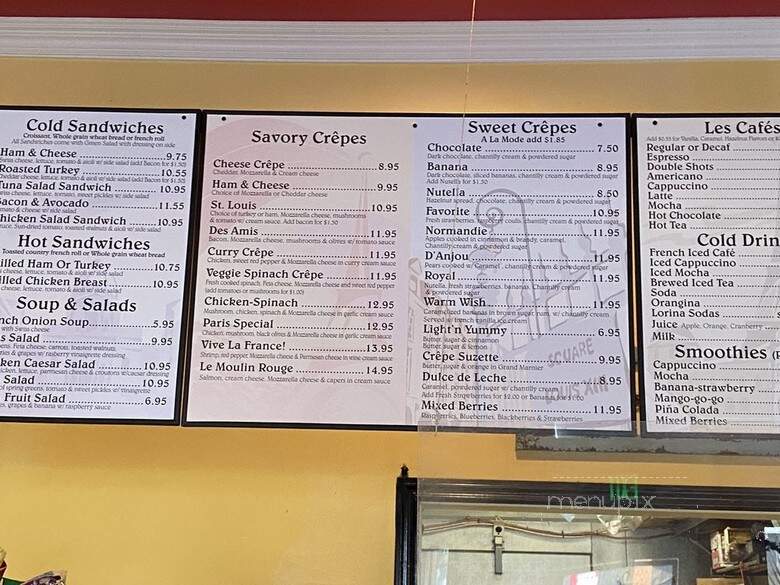 Cold Sandwiches
Croissant, Whole grain wheat bread or french roll
All Sandwiches come with Green Salad with dressing on side
Ham & Cheese 9.75
Swiss cheese, lettuce, tomato & aioli w/ side salad (add Bacon for $1.50)
Roasted Turkey 10.55
Cheddar cheese, lettuce, tomato & aioli w/ side salad (add Bacon for $1.50)
Tuna Salad Sandwich 10.95
Swiss cheese, lettuce, tomato, sweet pickles w/ side salad
Bacon & Avocado 11.55
tomato & cheese w/ side salad
Chicken Salad Sandwich 10.95
Sun-dried tomato, roasted walnuts & aioli w/ side salad
Hot Sandwiches
Toasted country french roll or Whole grain wheat bread
illed Ham Or Turkey 10.75
cheese, lettuce, tomato & aioli w/ side salad
illed Chicken Breast 10.95
cheese, lettuce, tomato & side salad
Soup & Salads
nch Onion Soup 5.95
with Swiss cheese
s Salad 9.95
Feta cheese, carrots, toasted walnuts,
& grapes w/ raspberry vinaigrette dressing
ken Caesar Salad 10.95
lettuce, parmesan cheese & croutons w/Caesar dressing
Salad 10.95
spring greens, tomato & sweet pickles w/ vinaigrette
Fruit Salad 6.95
grapes & banana w/ raspberry sauce
Savory Crêpes
Cheese Crêpe 8.95
Chedder, Mozzarella & Cream cheese
Ham & Cheese 9.95
Choice of Mozzarella or Chedder cheese
St. Louis 10.95
Choice of turkey or ham, Mozzarella cheese, mushrooms
& tomato w/ cream sauce. Add bacon for $1.50
Des Amis 11.95
Bacon, Mozzarella cheese, mushrooms & olives w/ tomato sauce
Curry Crêpe 11.95
Chicken, sweet red pepper & Mozzarella cheese in curry cream sauce
Veggie Spinach Crêpe 11.95
Fresh cooked spinach, Feta cheese, Mozzarella cheese and sweet red pepper
(add tomatoes or mushrooms for $1.00)
Chicken-Spinach 12.95
Mushroom, chicken, spinach & Mozzarella cheese in garlic cream sauce
Paris Special 12.95
Chicken, mushroom, black olives & Mozzarella cheese in garlic cream sauce
Vive La France! 13.95
Shrimp, red pepper, Mozzarella cheese & Parmesan cheese in wine cream sauce
Le Moulin Rouge 14.95
Salmon, cream cheese, Mozzarella cheese & capers in cream sauce
Sweet Crêpes
A La Mode add $1.85
Chocolate 7.50
Dark chocolate, chantilly cream & powdered sugar
Banana 8.95
Dark chocolate, sliced bananas, chantilly cream & powdered sugar
Add Nutella for $1.50
Nutella 8.50
Hazelnut spread, chocolate, chantilly cream & powdered sugar
Favorite 10.95
Fresh strawberries, yogurt, coulis, chantilly cream & powdered sugar
Normandie 11.95
Apples cooked in cinnamon & brandy, caramel,
Chantilly cream & powdered sugar
D'Anjou 11.95
Pears cooked w/ Caramel, chantilly cream & powdered sugar
Royal 11.95
Nutella, fresh strawberries, bananas, Chantilly cream
& powdered sugar
Warm Wish 11.95
Caramelized bananas in brown sugar, rum, w/ chantilly cream
Served w/ french vanilla ice cream
Light'n Yummy 6.95
Butter, sugar & cinnamon
Butter, sugar & lemon
Crêpe Suzette 9.95
Butter, sugar & orange in Grand Marnier
Dulce de Leche 8.95
Caramel, powdered sugar w/ chantilly cream
Add Fresh Strawberries for $2.00 or Banana for $1.00
Mixed Berries 11.95
Raspberries, Blueberries, Blackberries & Strawberries
SQUARE
Les Cafés
Add $0.55 for Vanilla, Caramel, Hazelnut Flavors or
Regular or Decaf
Espresso
Double Shots
Americano
Cappuccino
Latte
Mocha
Hot Chocolate
Hot Tea
Cold Drin
French Iced Café
Iced Cappuccino
Iced Mocha
Brewed Iced Tea
Soda
Orangina
Lorina Sodas
Juice Apple, Orange, Cranberry
Milk
Smoothies
Cappuccino
Mocha
Banana-strawberry
Mango-go-go
Piña Colada
Mixed Berries
menupix